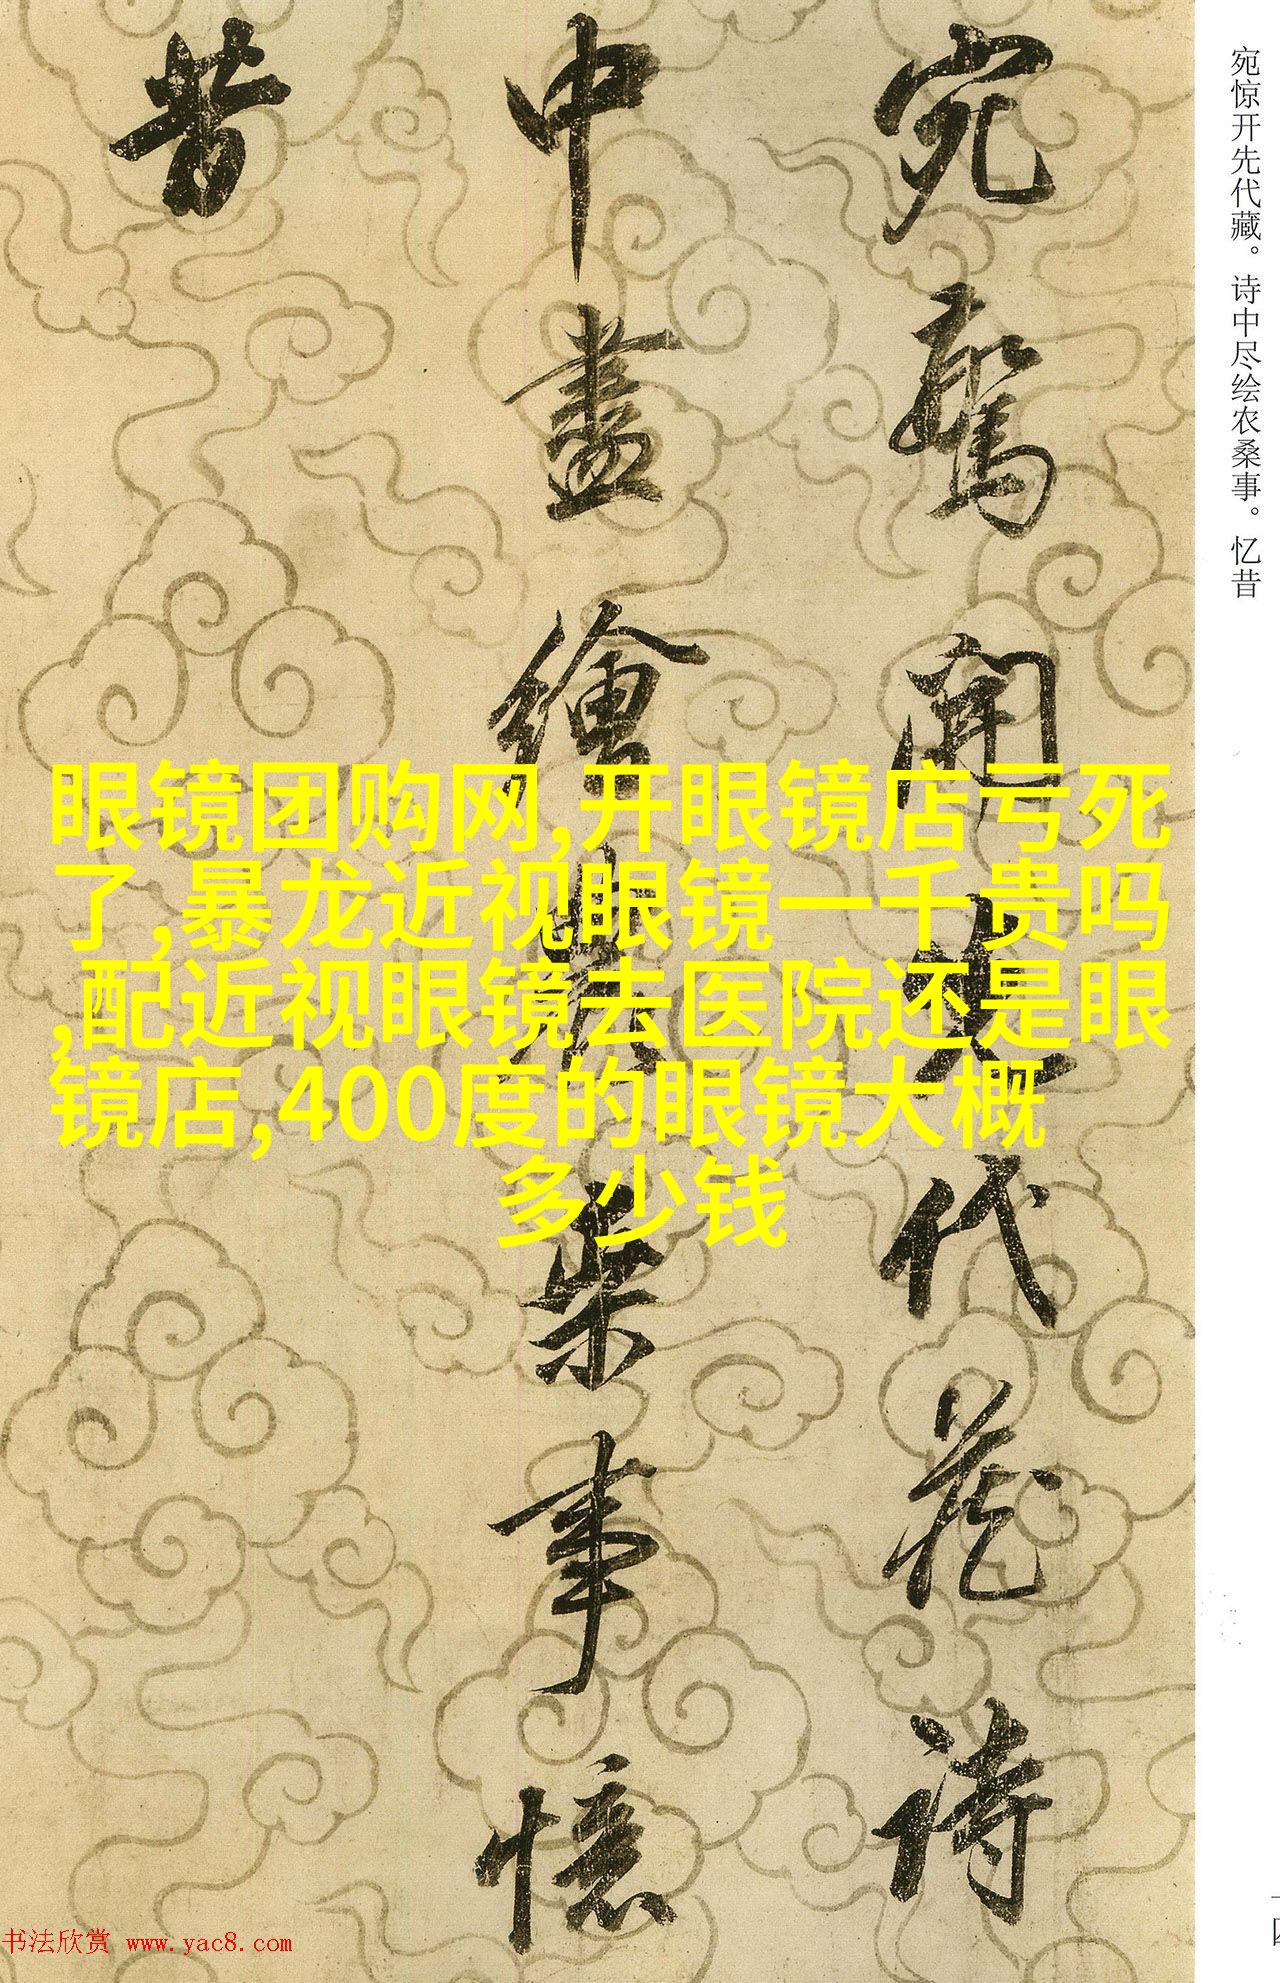 宛驚開先代藏詩
中盡繪農桒事憶
昔
宛惊开先代藏。诗中尽绘农桑事。忆昔
眼镜团购网,开眼镜店亏死
了,暴龙近视眼镜一千贵吗
,配近视眼镜去医院还是眼
镜店,400度的眼镜大概
多少钱
书法欣赏 www.yac8.com